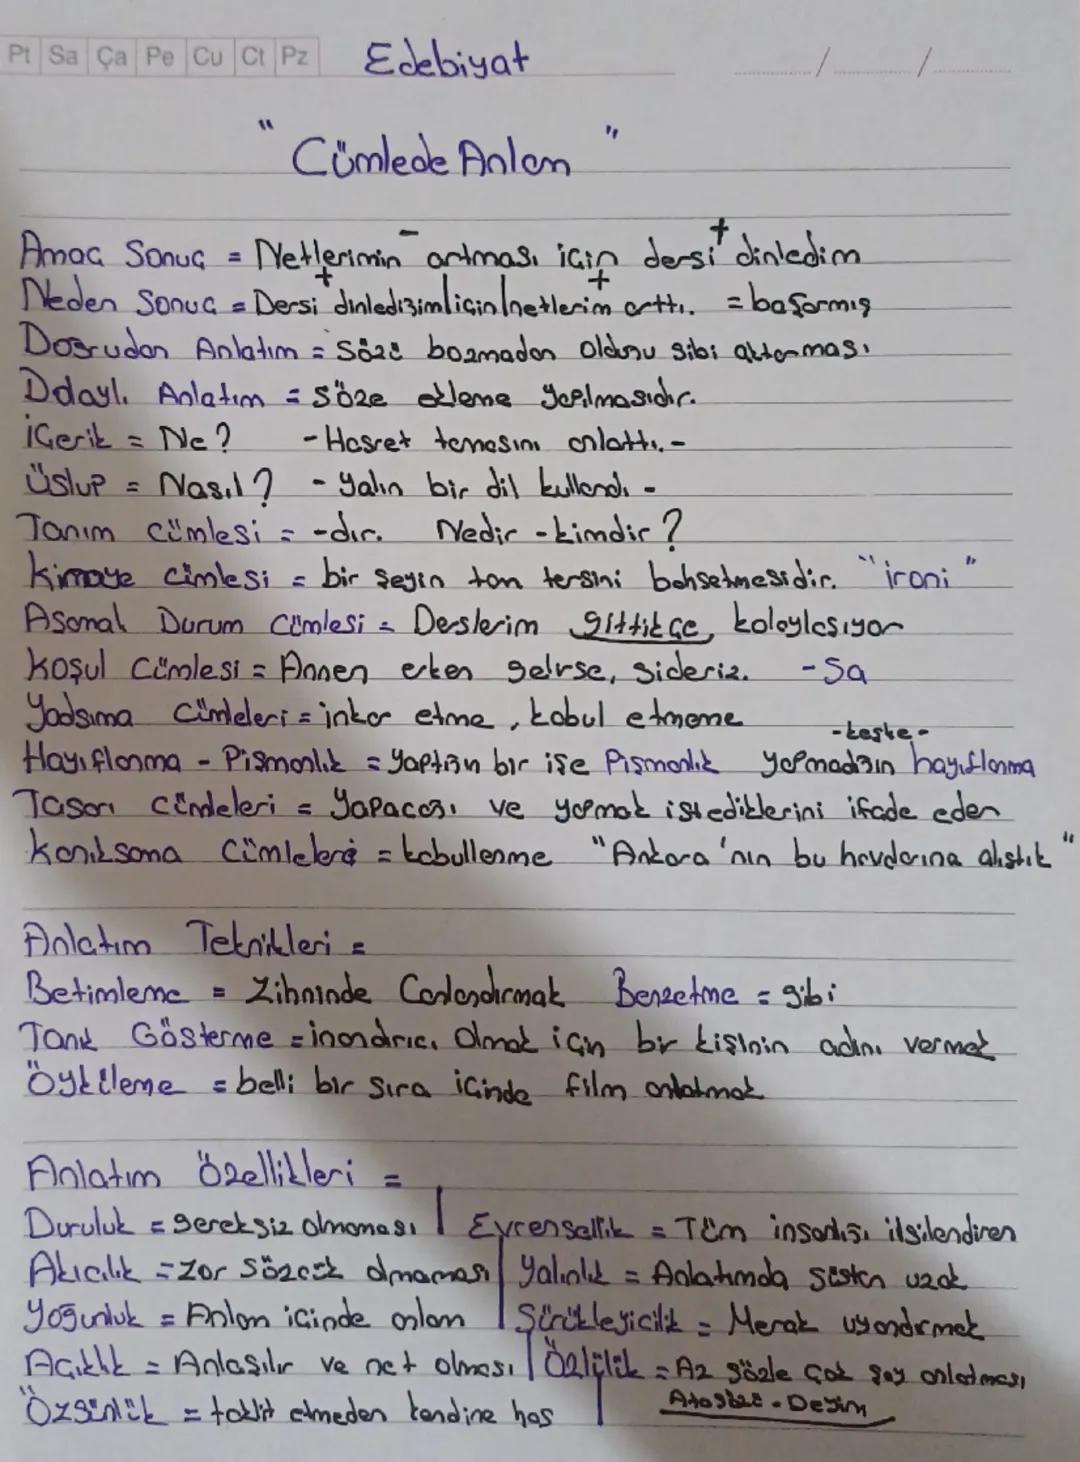 Pt Sa Ça Pe Cu Ct Pz Edebiyat ../../..
"Cümlede Anlam"
Amaç Sonuç = Netlerimin artması için dersi dinledim
- +
Neden Sonuç = Dersi dinlediğim için netlerim arttı. = başarmış
+ +
Doğrudan Anlatım = Sözü bozmadan olduğu gibi aktarması
Dolaylı Anlatım = Söze ekleme yapılmasıdır.
İçerik = Ne? - Hasret temasını anlattı. -
Üslup = Nasıl? - Yalın bir dil kullandı -
Tanım cümlesi = -dır. Nedir - kimdir?
Kinaye cümlesi = bir şeyin tam tersini bahsetmesidir. "ironi"
Aşamalı Durum Cümlesi = Derslerim gittikçe kolaylaşıyor
Koşul Cümlesi = Annen erken gelirse, gideriz. - Sa
Yadsıma Cümleleri = inkar etme, kabul etmeme
- keşke -
Hayıflanma - Pişmanlık = yaptığın bir işe Pişmanlık yapmadığın hayıflanma
Tasarı cümleleri = Yapacağı ve yapmak istediklerini ifade eden
Kanıksama Cümleleri = kabullenme "Ankara'nın bu havalarına alıştık"
Anlatım Teknikleri =
Betimleme = Zihninde Canlandırmak Benzetme = gibi
Tanık Gösterme = inandırıcı olmak için bir kişinin adını vermek
Öyküleme = belli bir sıra içinde film anlatmak
Anlatım Özellikleri =
Duruluk = gereksiz olmaması
Akıcılık = zor sözcük olmaması
Yoğunluk = Anlam içinde anlam
Açıklık = Anlaşılır ve net olması
Özgünlük = taklit etmeden kendine has
Evrensellik = Tüm insanlığı ilgilendiren
Yalınlık = Anlatımda süsten uzak
Sürükleyicilik = Merak uyandırmak
Özlülük = Az sözle çok şey anlatması
Atasözü - Deyim